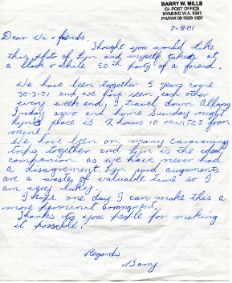 BARRY W. MILLS
C/- POST OFFICE
7-8-01
Dear We - friends.
Thought you would like
this photo of Lyn and myself taken at
a black & white 50th party of a friend.
We have been together 5 years come
30-9-01 and we have seen each other
every week end, I travel down Albany
Friday arvo and home Sunday night
Lyn's place is 2 hours 10 minutes from
mine.
We have been on many caravaning
trips together and Lyn is the ideal
companion as we have never had
a disagreement. Lyn said arguments
are a waste of valuable time so I
am very lucky.
I hope one day I can make this a
more permanent arrangment.
Thanks to you people for making
it possible.
Regards
Barry